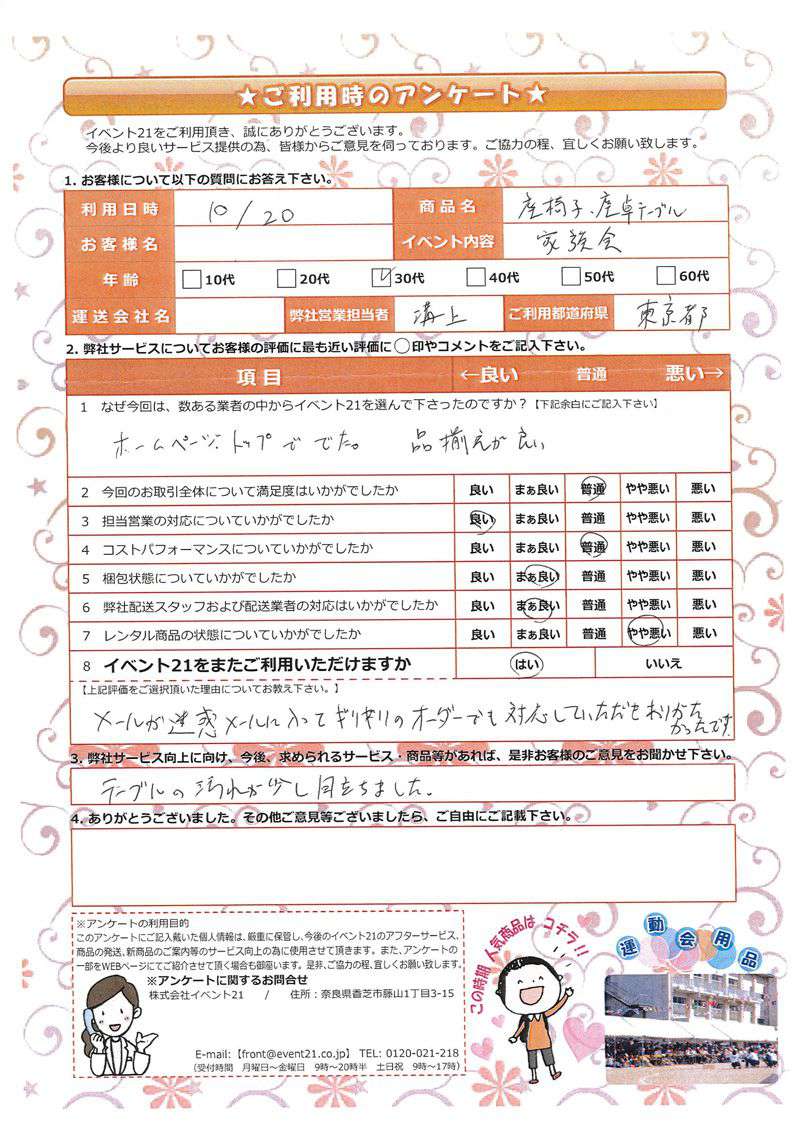 ★ご利用時のアンケート★
イベント21をご利用頂き、誠にありがとうございます。
今後より良いサービス提供の為、皆様からご意見を伺っております。ご協力の程、宜しくお願い致します。
1. お客様について以下の質問にお答え下さい。
利用日時 10/20 商品名 座椅子、座卓テーブル
お客様名 イベント内容 家族会
年齢 10代 20代 30代 40代 50代 60代
運送会社名 弊社営業担当者 溝上 ご利用都道府県 東京都
2. 弊社サービスについてお客様の評価に最も近い評価に○印やコメントをご記入下さい。
項目 ←良い 普通 悪い→
1 なぜ今回は、数ある業者の中からイベント21を選んで下さったのですか？【下記余白にご記入下さい】
ホームページ、トップででた。 品揃えが良い
2 今回のお取引全体について満足度はいかがでしたか 良い まぁ良い 普通 やや悪い 悪い
3 担当営業の対応についていかがでしたか 良い まぁ良い 普通 やや悪い 悪い
4 コストパフォーマンスについていかがでしたか 良い まぁ良い 普通 やや悪い 悪い
5 梱包状態についていかがでしたか 良い まぁ良い 普通 やや悪い 悪い
6 弊社配送スタッフおよび配送業者の対応はいかがでしたか 良い まぁ良い 普通 やや悪い 悪い
7 レンタル商品の状態についていかがでしたか 良い まぁ良い 普通 やや悪い 悪い
8 イベント21をまたご利用いただけますか はい いいえ
【上記評価をご選択頂いた理由についてお教え下さい。】
メールが迷惑メールに入ってギリギリのオーダーでも対応していただき
かったです。
3. 弊社サービス向上に向け、今後、求められるサービス・商品等があれば、是非お客様のご意見をお聞かせ下さい。
テーブルの汚れが少し目立ちました。
4. ありがとうございました。その他ご意見等ございましたら、ご自由にご記載下さい。
※アンケートの利用目的
このアンケートにご記入戴いた個人情報は、厳重に保管し、今後のイベント21のアフターサービス、
商品の発送、新商品のご案内等のサービス向上の為に使用させて頂きます。また、アンケートの
一部をWEBページにてご紹介させて頂く場合も御座います。是非、ご協力の程、宜しくお願い致します。
※アンケートに関するお問合せ
株式会社イベント21 / 住所：奈良県香芝市藤山1丁目3-15
E-mail:【front@event21.co.jp】 TEL: 0120-021-218
（受付時間 月曜日～金曜日 9時～20時半 土日祝 9時～17時）
この時期人気商品はコチラ!!
運動会用品